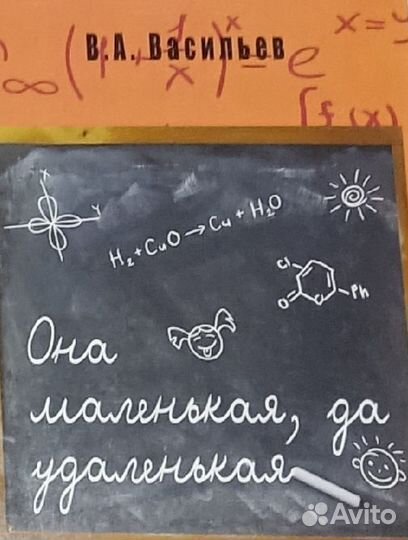 В.А. Васильев
∞ (1 + 1/x)^x = e
x = y
[f(x)
x
y
H₂+CuO→Cu+H₂O
Cl
O
Ph
Она
маленькая, да
удаленькая
Avito